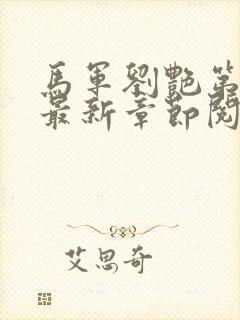 馬軍劉艷第
最新章節閱
艾思奇